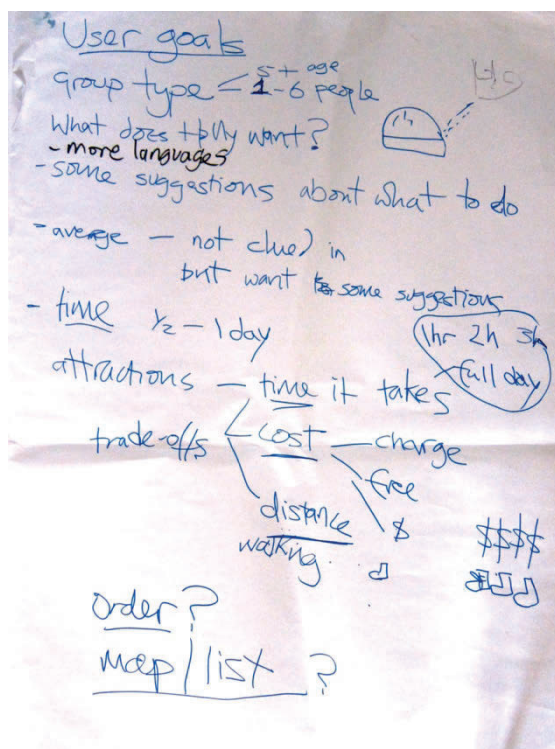 User goals
group type < 5+ age
1-6 people
What does they want?
- more languages
- some suggestions about what to do
- average — not clued in
but want some suggestions
- time ½ - 1 day
1hr 2h 3h
full day
attractions — time it takes
trade-offs cost — charge
free
$ $$$$
distance
walking
order?
map / list ?